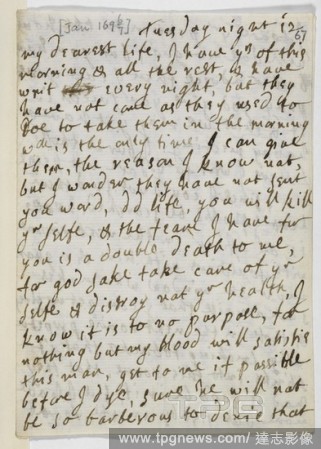 [Jan. 169 6/7] Tuesday night 12
67
my dearest life, I have yrs of this
morning & all the rest, & have
writ every night, but they
have not came as they used to
doe to take them in the morning
wch is the only time I can give
them, the reason I know not,
but I wonder they have not sent
you word, dd life, you will kill
yr selfe, & the feare I have for
you is a double death to me,
for god sake take care of yr
selfe & distroy not yr health, I
know it is to no purpose, for
nothing but my blood will satisfie
this man, get to me if possible
before I dye, sure he will not
be so barberous to denie that
TPG
www.tpgnews.com / 達志影像